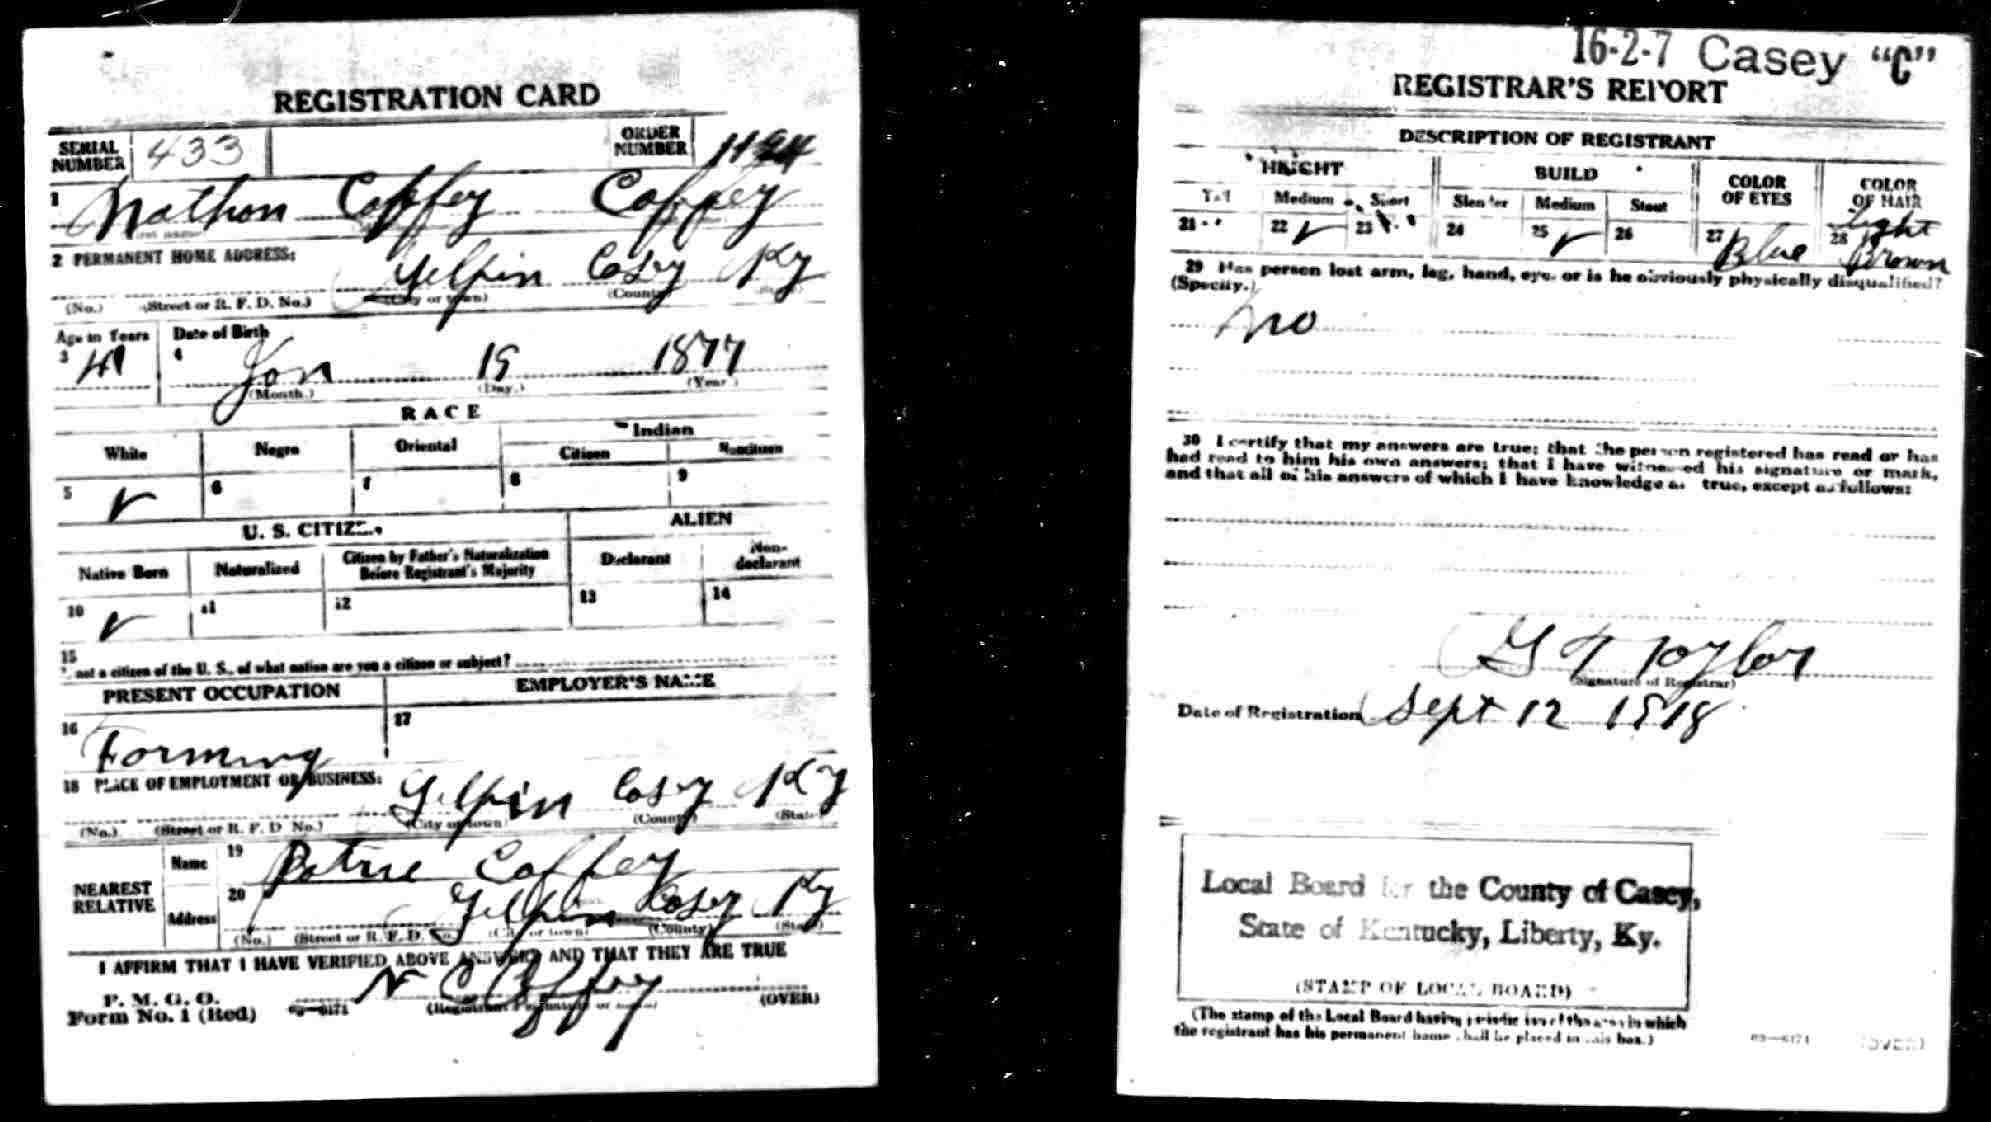 REGISTRATION CARD
SERIAL NUMBER 433 ORDER NUMBER
1 Nathon Coffey Coffey
2 PERMANENT HOME ADDRESS: Gilpin Casey Ky
(No.) (Street or R. F. D. No.) (City or town) (County)
Age in Years Date of Birth
3 41 4 Jan 19 1877
(Month.) (Day.) (Year)
RACE
White Negro Oriental Indian
Citizen Noncitizen
5 ✓ 6 7 8 9
U. S. CITIZEN ALIEN
Native Born Naturalized Citizen by Father's Naturalization Before Registrant's Majority Declarant Non-declarant
10 ✓ 11 12 13 14
15
not a citizen of the U. S., of what nation are you a citizen or subject?
PRESENT OCCUPATION EMPLOYER'S NAME
16 Farming 17
18 PLACE OF EMPLOYMENT OR BUSINESS:
Gilpin Casey Ky
(No.) (Street or R. F. D No.) (City or town) (County) (State)
NEAREST RELATIVE Name 19 Coffey
Address 20 Gilpin Casey Ky
(No.) (Street or R. F. D. No.) (City or town) (County) (State)
I AFFIRM THAT I HAVE VERIFIED ABOVE ANSWERS AND THAT THEY ARE TRUE
P. M. G. O.
Form No. 1 (Red) N C Coffey (OVER)
16-2-7 Casey "C"
REGISTRAR'S REPORT
DESCRIPTION OF REGISTRANT
HEIGHT BUILD COLOR OF EYES COLOR OF HAIR
Tall Medium Short Slender Medium Stout
21 22 ✓ 23 24 25 ✓ 26 27 Blue 28 Light Brown
29 Has person lost arm, leg, hand, eye, or is he obviously physically disqualified?
(Specify.)
No
30 I certify that my answers are true; that the person registered has read or has
had read to him his own answers; that I have witnessed his signature or mark,
and that all of his answers of which I have knowledge are true, except as follows:
G T Taylor
(Signature of Registrar)
Date of Registration Sept 12 1918
Local Board for the County of Casey,
State of Kentucky, Liberty, Ky.
(STAMP OF LOCAL BOARD)
(The stamp of the Local Board having jurisdiction of the area in which
the registrant has his permanent home shall be placed in this box.)
03—6171 (OVER)